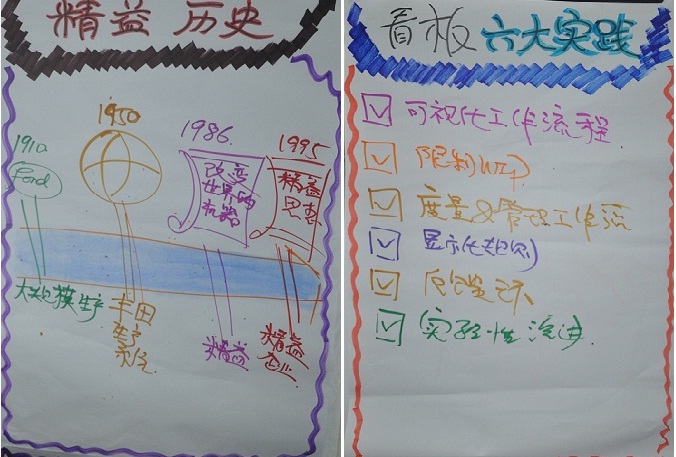 精益 历史
1910
1950
1986.
1995
Ford
改变
世界的
机器
精益
思想
大规模生产
丰田
生产
系统
精益
精益
企业
看板 六大实践
可视化工作流程
限制WIP
度量&管理工作流
显示化规则
反馈环
实验性改进